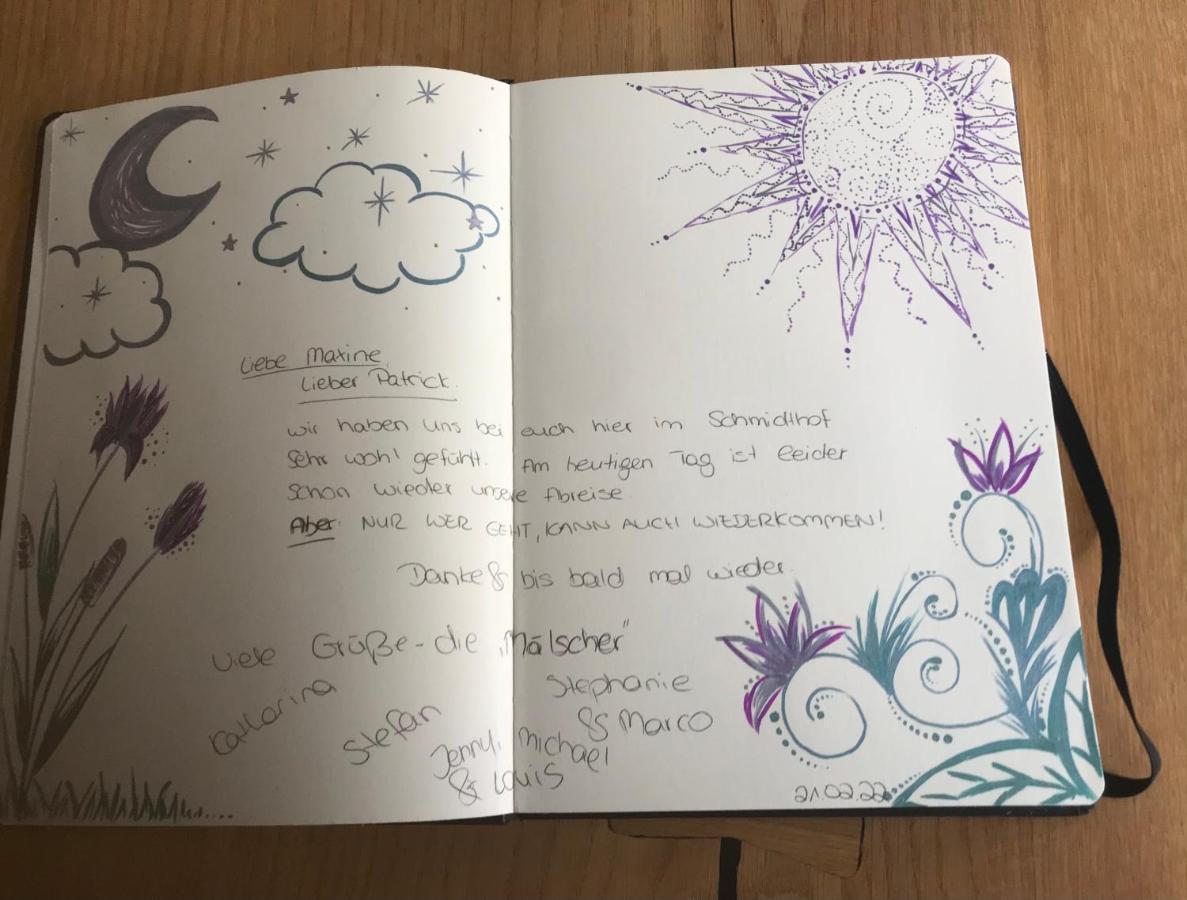 Liebe Maxine,
Lieber Patrick.
wir haben uns bei euch hier im Schmidthof
sehr wohl gefühlt. Am heutigen Tag ist leider
schon wieder unsere Abreise.
Aber: NUR WER GEHT, KANN AUCH WIEDERKOMMEN!
Danke & bis bald mal wieder.
Viele Grüße - die „Mälscher"
Katharina
Stefan
Stephanie
& Marco
Jenny, Michael
& Louis
21.02.22